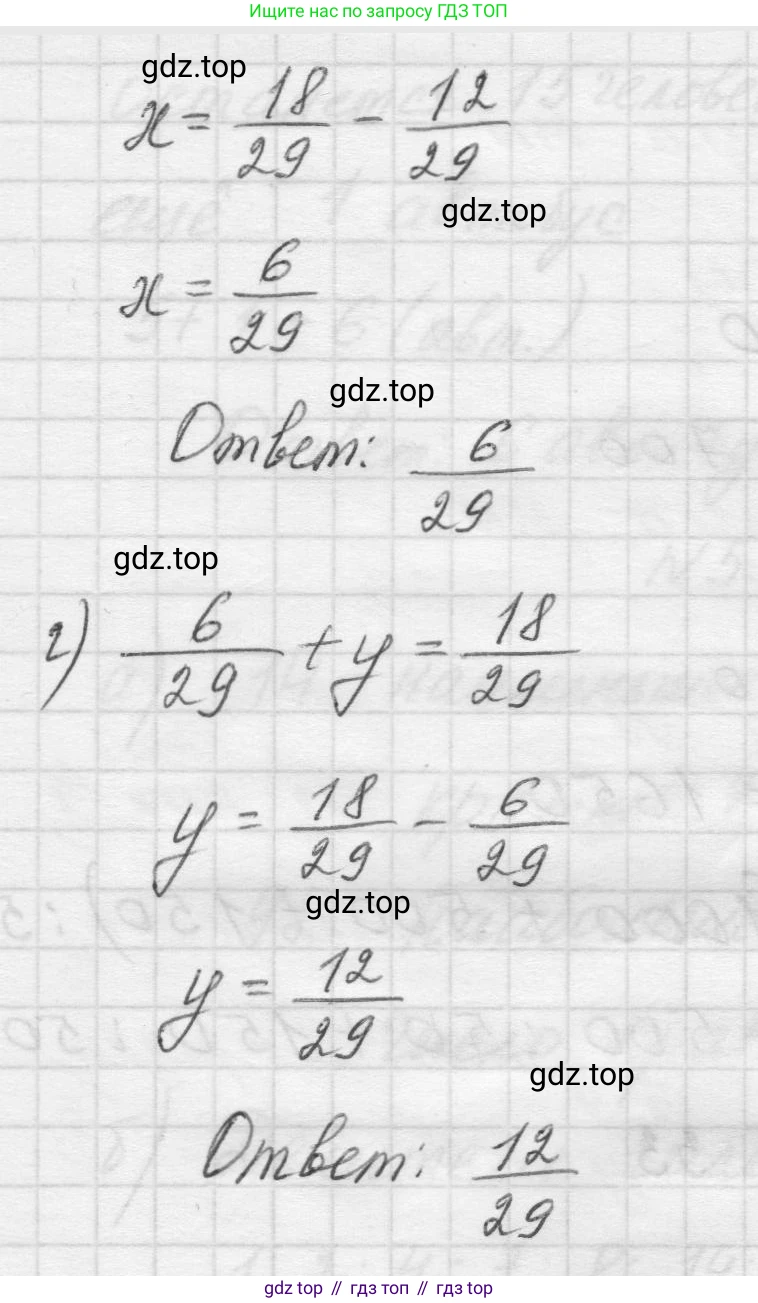 Ищите нас по запросу ГДЗ ТОП
gdz.top
x = 18/29 - 12/29
gdz.top
x = 6/29
gdz.top
Ответ: 6/29
gdz.top
г) 6/29 + y = 18/29
y = 18/29 - 6/29
gdz.top
y = 12/29
gdz.top
Ответ: 12/29
gdz.top // гдз топ // гдз top